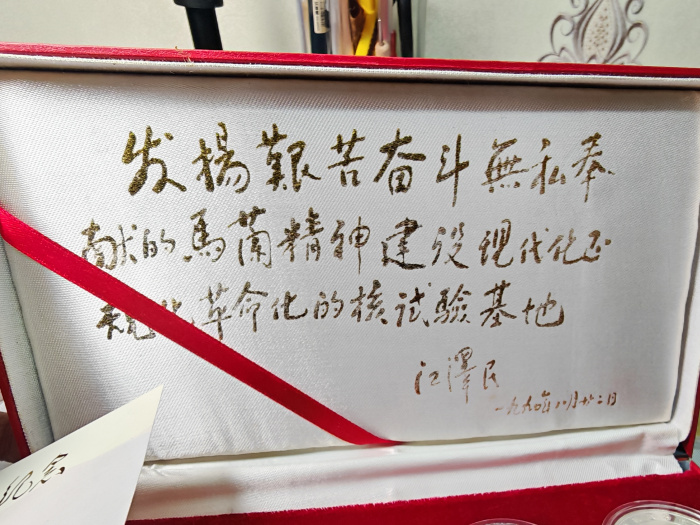 发揚艱苦奋斗無私奉
献的馬蘭精神建设现代化正
规化革命化的核试驗基地
江澤民
一九九〇年八月廿二日